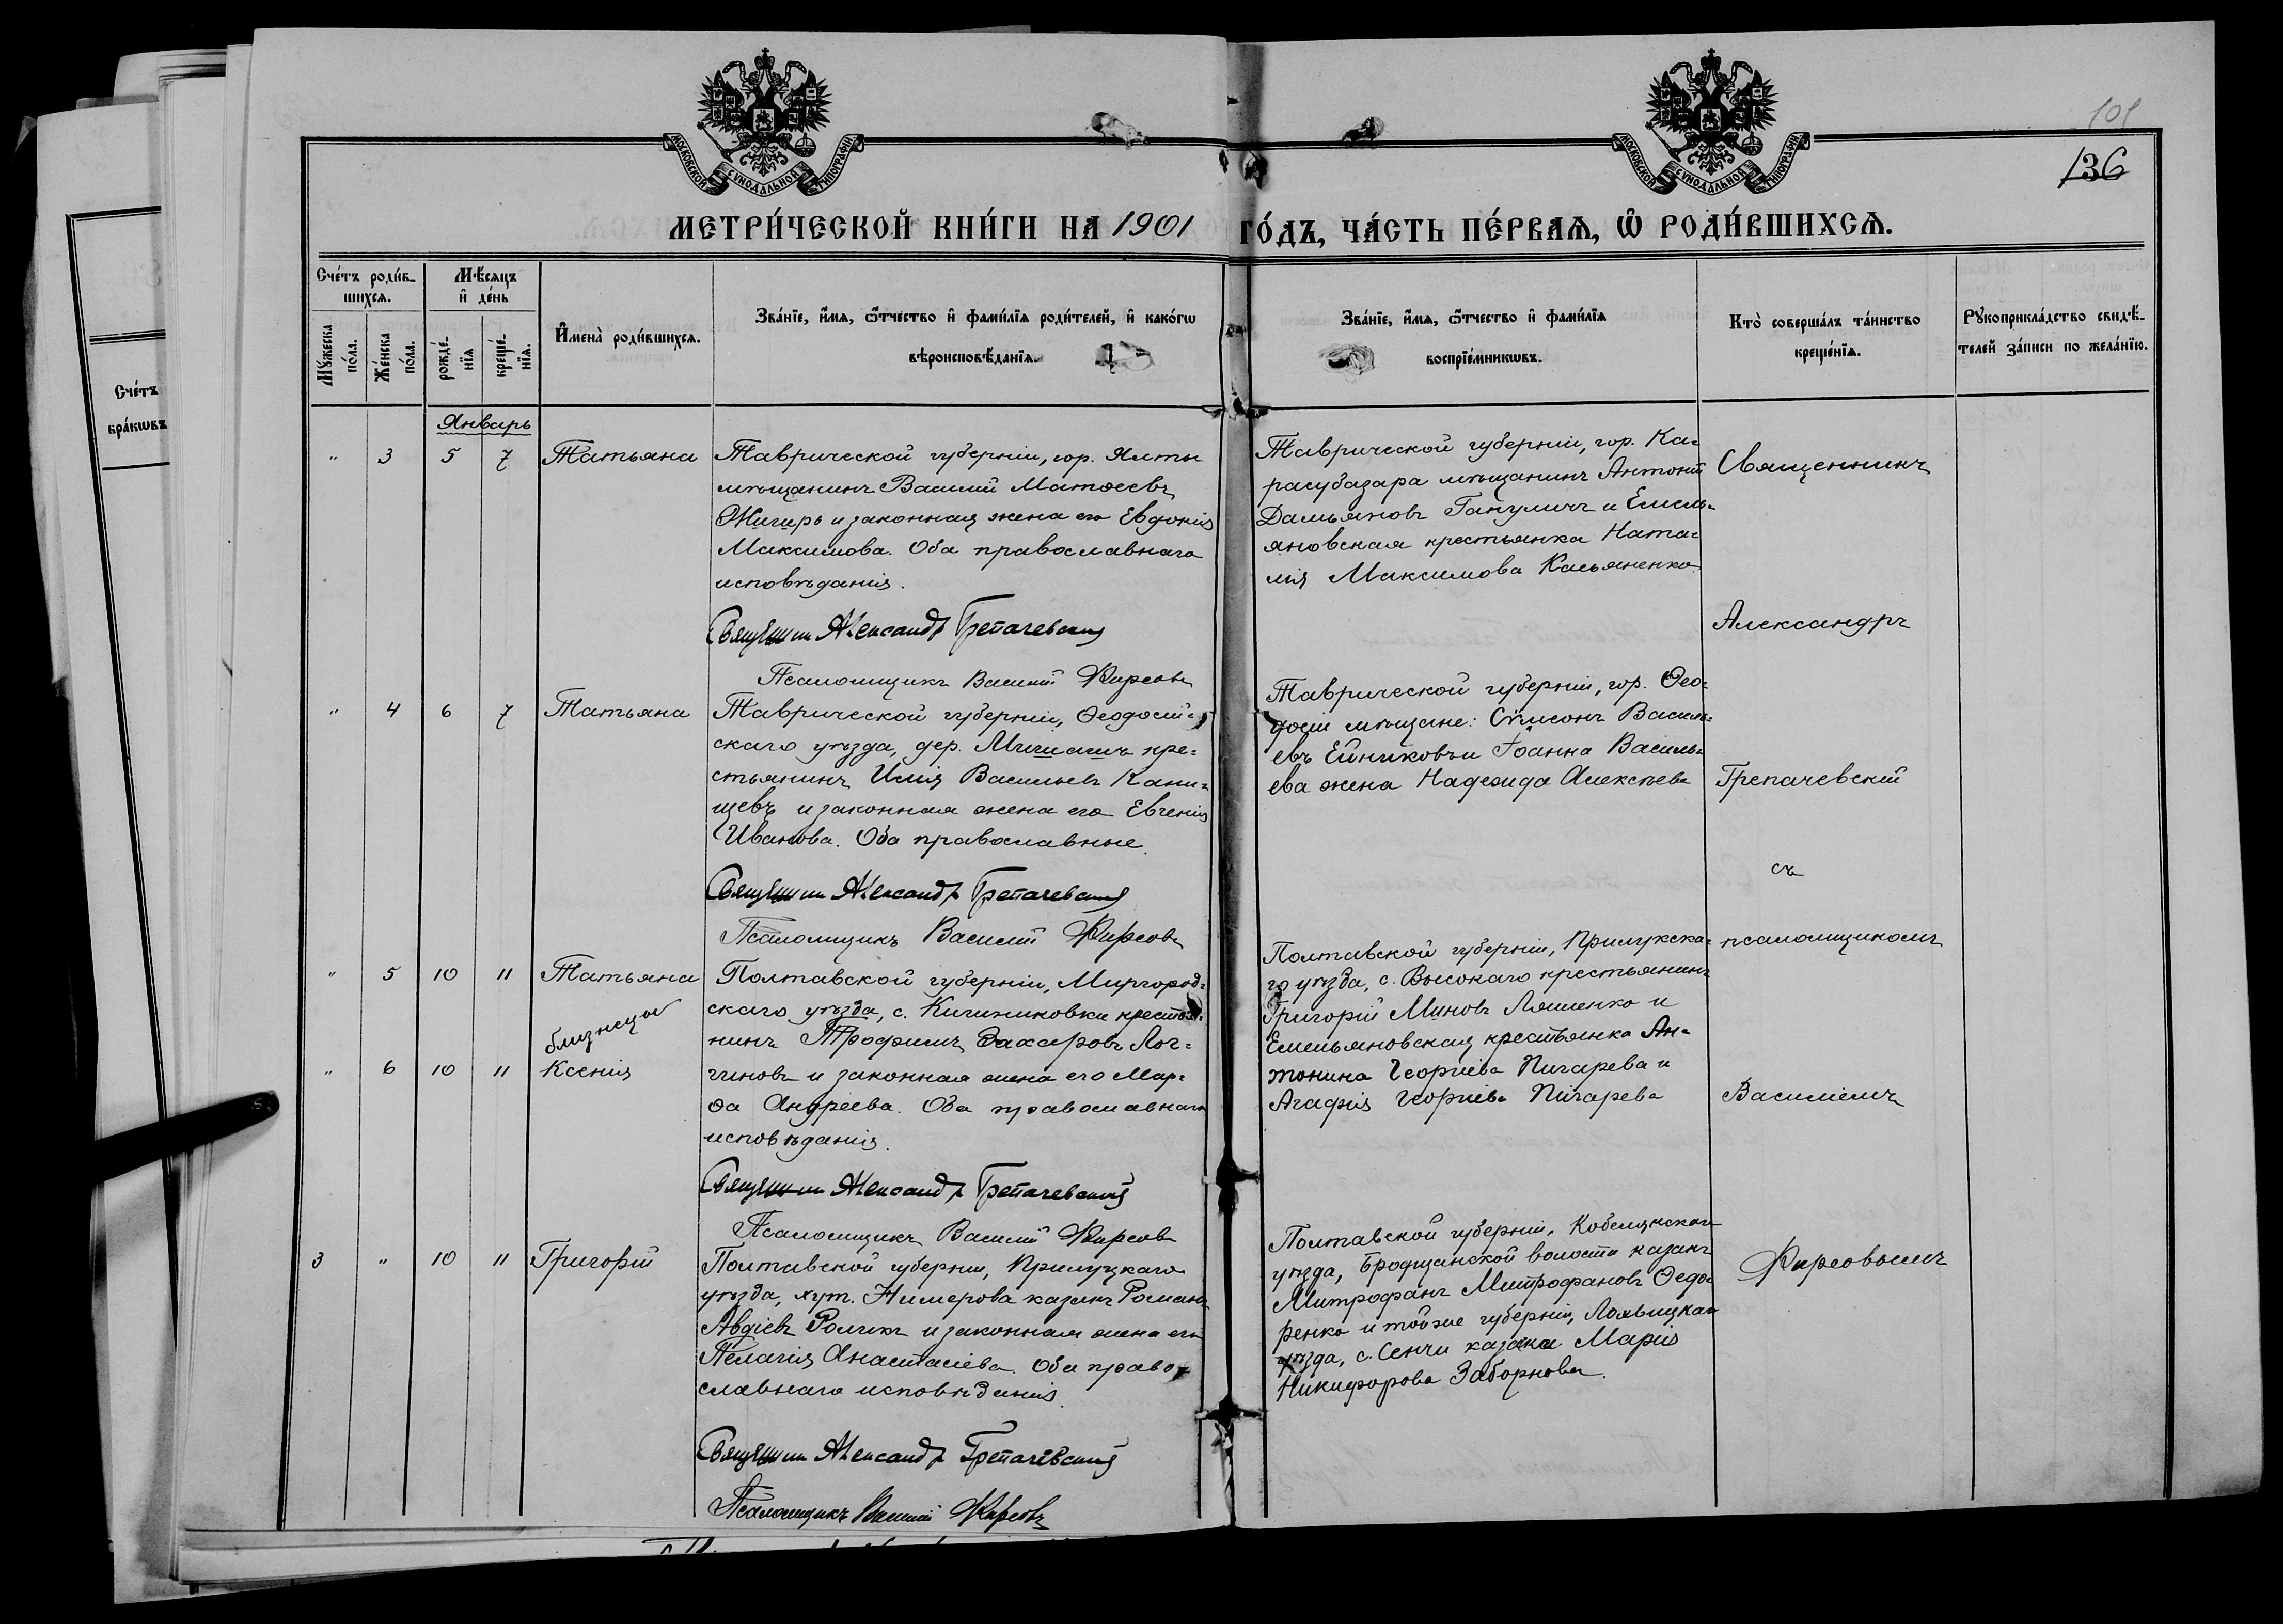 МОСКОВСКОЙ СѴНОДАЛЬНОЙ ТИПОГРАФІИ
МОСКОВСКОЙ СѴНОДАЛЬНОЙ ТИПОГРАФІИ
101
136
МЕТРИ́ЧЕСКОЙ КНИ́ГИ НА 1901 ГО́ДЪ, ЧА́СТЬ ПЕ́РВАѦ, Ѡ҆ РОДИ́ВШИХСѦ.
Счéтъ
брáкѡвъ
Счéтъ роди́в-
шихсѧ.
Мꙋ́жеска
по́ла.
Же́нска
по́ла.
Мѣ́сѧцъ
и҆ де́нь
рожде́-
нїѧ
креще́-
нїѧ.
И҆менà роди́вшихсѧ.
Зва́нїе, и҆́мѧ, ѻ҆́тчество и҆ фами́лїѧ роди́телей, и҆ како́гѡ
вѣроисповѣ́данїѧ.
Зва́нїе, и҆́мѧ, ѻ҆́тчество и҆ фами́лїѧ
воспрїе́мникѡвъ.
Кто̀ соверша́лъ та́инство
креще́нїѧ.
Рꙋкоприкла́дство свидѣ́-
телей за́писи по жела́нїю.
Январь
" 3 5 7 Татьяна
Таврической губерніи, гор. Ялты
мѣщанинъ Василій Матѳеевъ
Жигирь и законная жена его Евдокія
Максимова. Оба православнаго
исповѣданія.
Священникъ Александръ Грепачевскій
Псаломщикъ Василій Фирсовъ
Таврической губерніи, гор. Ка=
расубазара мѣщанинъ Антоній
Дамьяновъ Гануличъ и Емель=
яновская крестьянка Ната=
лія Максимова Касьяненко
" 4 6 7 Татьяна
Таврической губерніи, Ѳеодосій=
скаго уѣзда, дер. кре=
стьянинъ Илія Васильевъ Кани=
щевъ и законная жена его Евгенія
Иванова. Оба православные.
Священникъ Александръ Грепачевскій
Псаломщикъ Василій Фирсовъ
Таврической губерніи, гор. Ѳео=
досіи мѣщане: Сѵмеонъ Василь=
евъ Ейниковъ и Іоанна Василь=
ева жена Надежда Алексѣева
" 5 10 11 Татьяна
близнецы
" 6 10 11 Ксенія
Полтавской губерніи, Миргород=
скаго уѣзда, с. Кичиниковки крестья=
нинъ Трофимъ Захаровъ Лог=
гиновъ и законная жена его Мар=
ѳа Андреева. Оба православнаго
исповѣданія.
Священникъ Александръ Грепачевскій
Псаломщикъ Василій Фирсовъ
Полтавской губерніи, Прилукска=
го уѣзда, с. Высокаго крестьянинъ
Григорій Миновъ Ляшенко и
Емельяновская крестьянка Ан=
тонина Георгіева Пигарева и
Агафія Георгіева Пигарева
3 " 10 11 Григорій
Полтавской губерніи, Прилуцкаго
уѣзда, хут. Нимерова казакъ Романъ
Авдіевъ Ромикъ и законная жена его
Пелагія Анастасіева. Оба право=
славнаго исповѣданія.
Священникъ Александръ Грепачевскій
Псаломщикъ Василій Фирсовъ
Полтавской губерніи, Кобелякскаго
уѣзда, Бродщанской волости казакъ
Митрофанъ Митрофановъ Ѳедо=
ренко и тойже губерніи, Лохвицкаго
уѣзда, с. Сенчи казачка Марія
Никифорова Заборнова.
Священникъ
Александръ
Грепачевскій
съ
псаломщикомъ
Василіемъ
Фирсовымъ